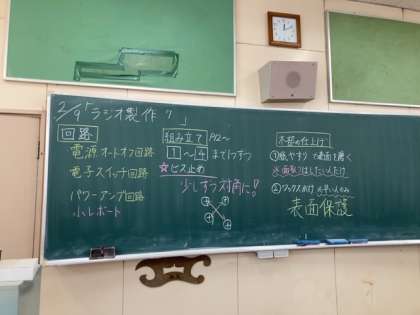 2/9「ラジオ製作 7 」
回路
電源 オートオフ回路
電子スイッチ回路
パワーアンプ回路
小レポート
組み立て P12〜
1 〜 14 まで1つずつ
☆ビス止め
少しずつ対角に!
木部の仕上げ
①紙やすりで表面を磨く
※面取りはしたい人だけ
②ワックスがけ
表面保護